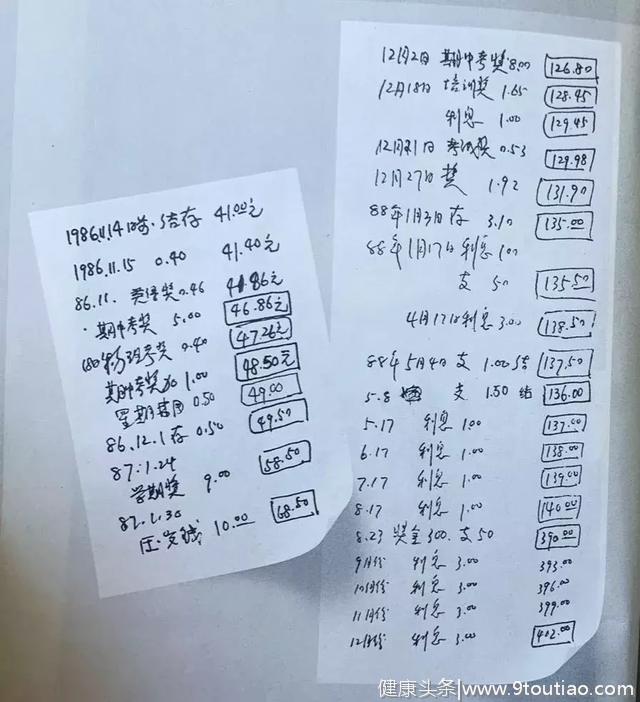 1986.11.14日前·结存 41.00元
1986.11.15 0.40 41.40元
86.11. 英语奖0.46 41.86元
·期中考奖 5.00 46.86元
考奖 0.40 47.26元
期中考奖加 1.00 48.50元
星期 0.50 49.00
86.12.1存 0.50 49.50
87.1.24
学期奖 9.00 58.50
87.1.30
压岁钱 10.00 68.50
12月2日 期中考奖 8.00 126.80
12月18日 培训奖 1.65 128.45
利息 1.00 129.45
12月21日 考试奖 0.53 129.98
12月27日 奖 1.92 131.90
88年1月3日存 3.10 135.00
88年1月17日利息 1.00
支 50 135.50
4月17日利息 3.00 138.50
88年5月4日支 1.00结 137.50
5.8 支 1.50 结 136.00
5.17 利息 1.00 137.00
6.17 利息 1.00 138.00
7.17 利息 1.00 139.00
8.17 利息 1.00 140.00
8.23 奖金300. 支50 390.00
9月份 利息 3.00 393.00
10月份 利息 3.00 396.00
11月份 利息 3.00 399.00
12月份 利息 3.00 402.00
健康头条|www.9toutiao.com